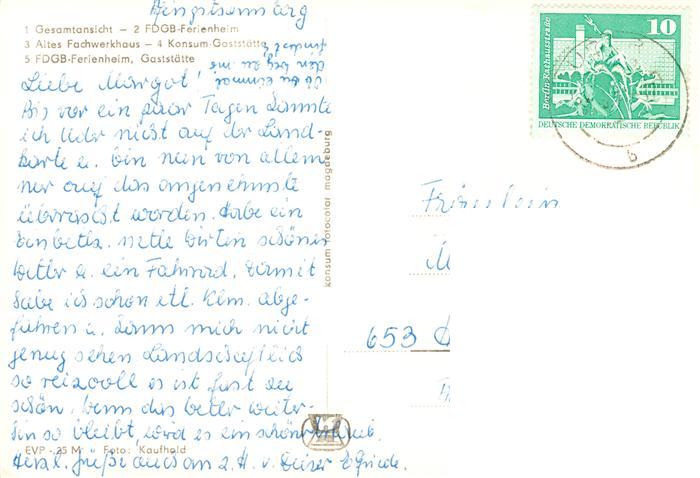 Pfingstsonntag
1 Gesamtansicht — 2 FDGB-Ferienheim
3 Altes Fachwerkhaus — 4 Konsum-Gaststätte
5 FDGB-Ferienheim, Gaststätte
Ob du einmal
den Weg zu uns
findest?
Liebe Margot!
Bis vor ein paar Tagen kannte
ich Uder nicht auf der Land-
karte u. bin nun von allem
hier auf das angenehmste
überrascht worden. Habe ein
Einbettz. nette Wirtin schönes
Wetter u. ein Fahrrad. Damit
habe ich schon etl. Klm. abge-
fahren u. kann mich nicht
genug sehen. Landschaftlich
so reizvoll es ist fast zu
schön, wenn das Wetter weiter-
hin so bleibt, wird es ein schöner Urlaub.
Herzl. Grüße auch an z. H. v. Deiner Elfriede.
EVP -,25 M Foto: Kaufhold
konsum fotocolor magdeburg
10
Berlin-Rathausstraße
DEUTSCHE DEMOKRATISCHE REPUBLIK
b
Fräulein
M
653